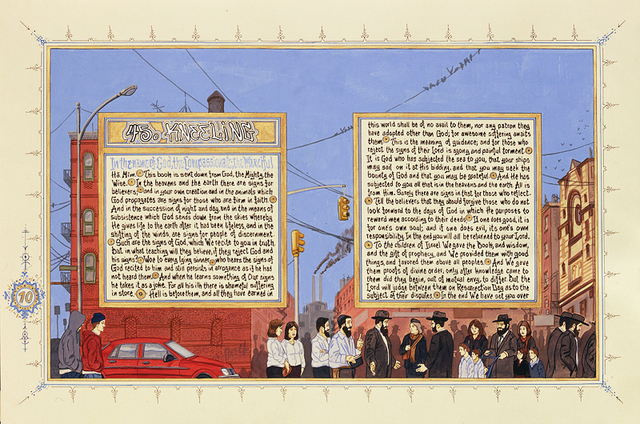 45. KNEELING
In the name of God, the Compassionate, the Merciful
Ha Mim. This book is sent down from God, the Mighty, the
Wise. In the heavens and the earth there are signs for
believers. And in your own creation and in the animals which
God propagates are signs for those who are firm in faith.
And in the succession of night and day, and in the means of
subsistence which God sends down from the skies whereby
He gives life to the earth after it has been lifeless, and in the
shifting of the winds, are signs for people of discernment.
Such are the signs of God, which We recite to you in truth,
but in what teaching will they believe, if they reject God and
his signs? Woe to every lying sinner who hears the signs of
God recited to him and still persists in arrogance as if he has
not heard them. And when he learns something of Our signs
he takes it as a joke. For all his life there is shameful suffering
in store. Hell is before them, and all they have earned in
this world shall be of no avail to them, nor any patron they
have adopted other than God; for awesome suffering awaits
them. This is the meaning of guidance; and for those who
reject the signs of their Lord is agony and painful torment.
It is God who has subjected the sea to you, that your ships
may sail on it at His bidding, and that you may seek the
bounty of God and that you may be grateful. And He has
subjected to you all that is in the heavens and the earth. All is
from Him. Surely there are signs in that for those who reflect.
Tell the believers that they should forgive those who do not
look forward to the days of God in which He purposes to
reward men according to their deeds. If one does good, it is
for one's own soul; and if one does evil, its one's own
responsibility. In the end you will all be returned to your Lord.
To the children of Israel We gave the Book, and wisdom,
and the gift of prophecy, and We provided them with good
things, and favored them above all peoples. And We gave
them proofs of divine order; only after knowledge come to
them did they begin, out of mutual envy, to differ. But the
Lord will judge between them on Resurrection Day as to the
subject of their disputes. In the end We have set you over
10